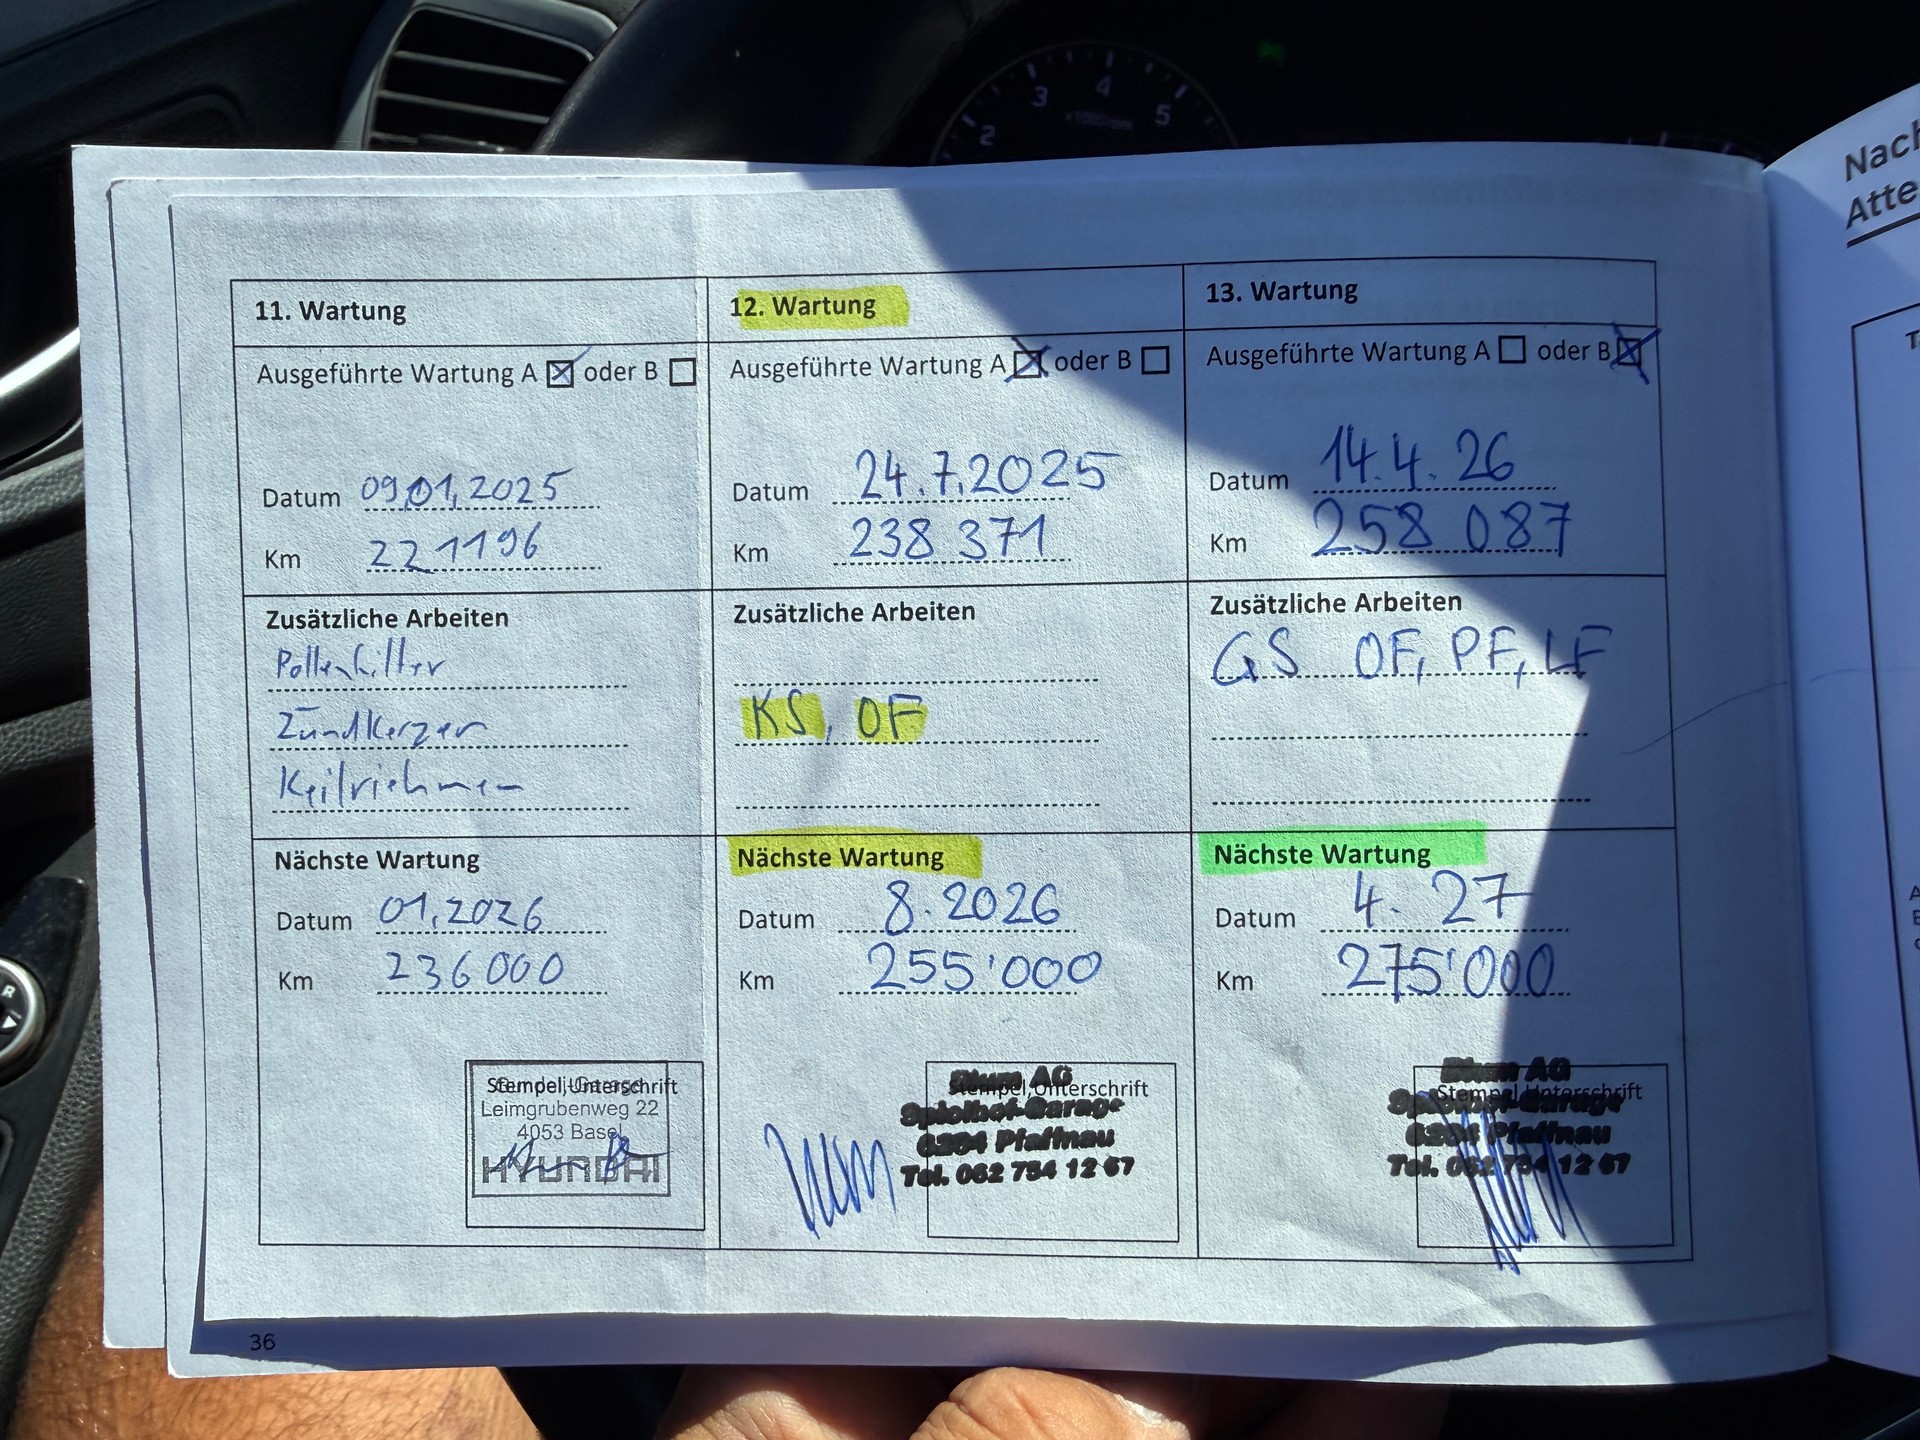 2 3 4 5
x1000rpm
Nach
Atte
11. Wartung
Ausgeführte Wartung A oder B
Datum 09.01.2025
Km 221196
Zusätzliche Arbeiten
Pollenfilter
Zündkerzen
Keilriehmen
Nächste Wartung
Datum 01.2026
Km 236000
Stempel, Unterschrift
Leimgrubenweg 22
4053 Basel
HYUNDAI
12. Wartung
Ausgeführte Wartung A oder B
Datum 24.7.2025
Km 238 371
Zusätzliche Arbeiten
KS, OF
Nächste Wartung
Datum 8.2026
Km 255'000
Stempel, Unterschrift
Blum AG
Spielhof-Garage
6264 Pfaffnau
Tel. 062 754 12 67
13. Wartung
Ausgeführte Wartung A oder B
Datum 14.4.26
Km 258 087
Zusätzliche Arbeiten
GS OF, PF, LF
Nächste Wartung
Datum 4. 27
Km 275'000
Stempel, Unterschrift
Blum AG
Spielhof-Garage
6264 Pfaffnau
Tel. 062 754 12 67
36
R